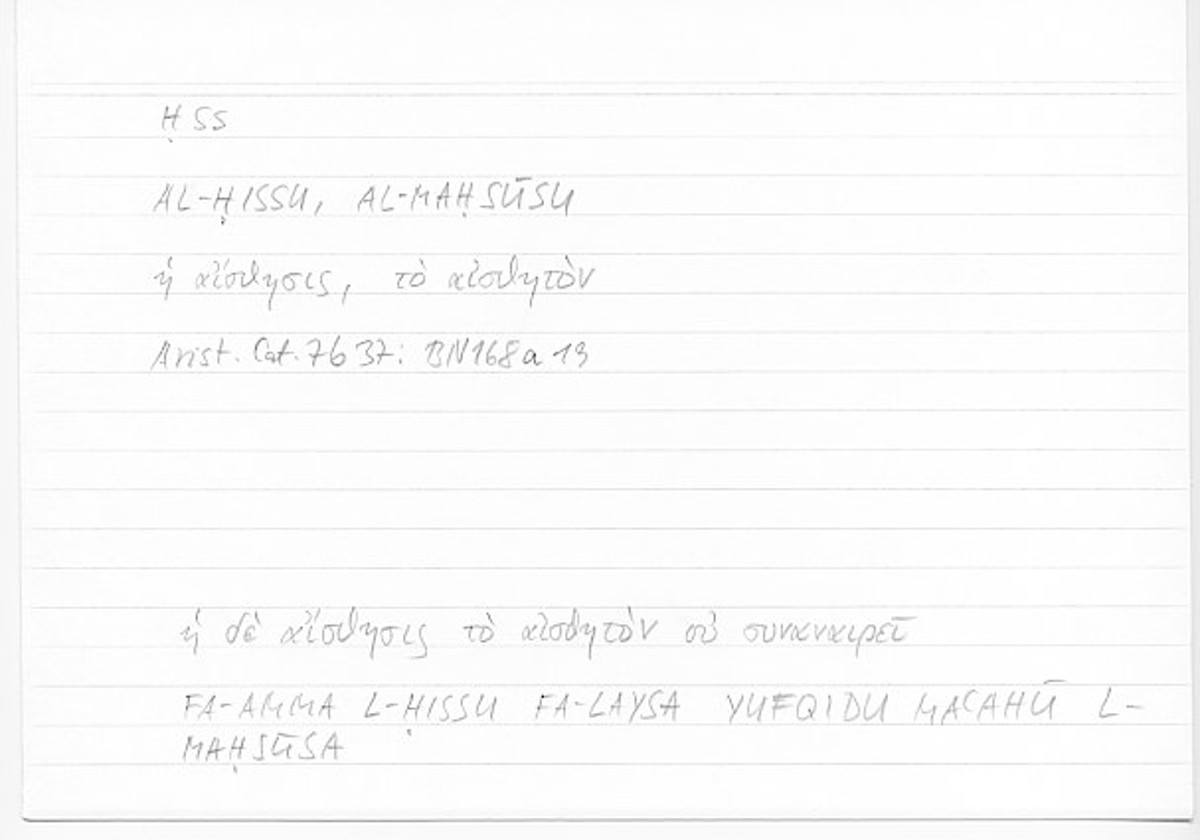 Ḥ SS
AL-ḤISSU, AL-MAḤSŪSU
ἡ αἴσθησις, τὸ αἰσθητὸν
Arist. Cat. 7b 37: BN168a 13
ἡ δὲ αἴσθησις τὸ αἰσθητὸν οὐ συναναιρεῖ
FA-AMMA L-ḤISSU FA-LAYSA YUFQIDU MAʿAHŪ L-
MAḤSŪSA